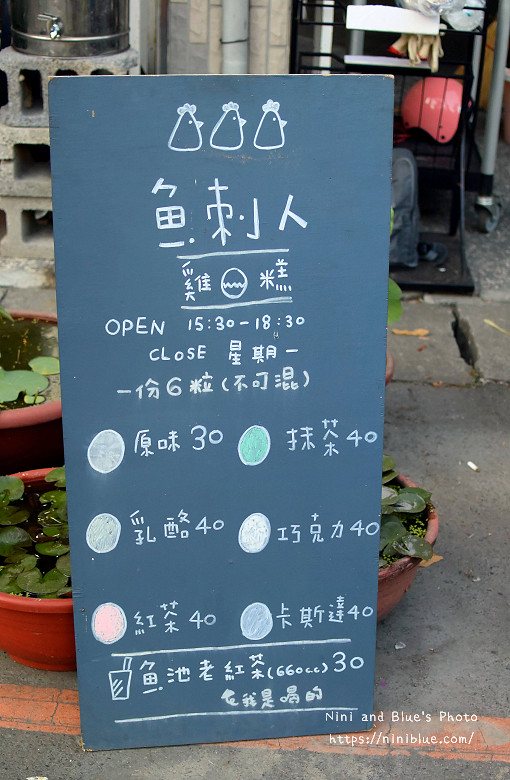 魚刺人
雞糕
OPEN 15:30-18:30
CLOSE 星期一
一份6粒(不可混)
原味30 抹茶40
乳酪40 巧克力40
紅茶40 卡斯達40
魚池老紅茶(660cc)30
我是喝的
Nini and Blue's Photo
https://niniblue.com/